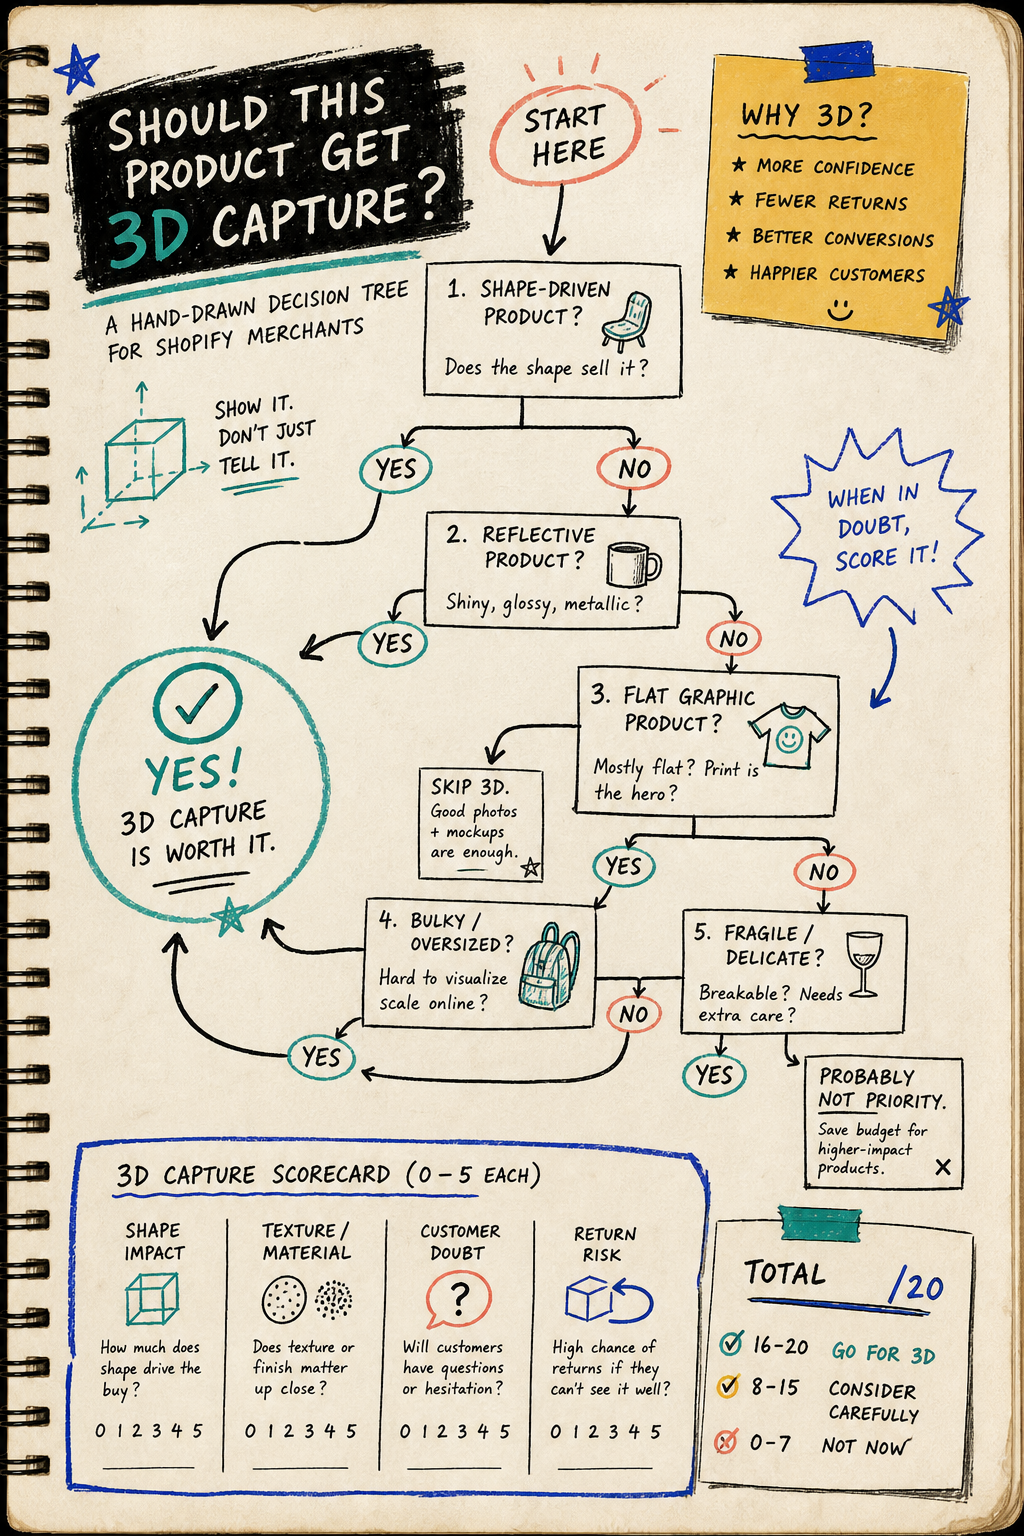 SHOULD THIS
PRODUCT GET
3D CAPTURE?
A HAND-DRAWN DECISION TREE
FOR SHOPIFY MERCHANTS
SHOW IT.
DON'T JUST
TELL IT.
START
HERE
WHY 3D?
★ MORE CONFIDENCE
★ FEWER RETURNS
★ BETTER CONVERSIONS
★ HAPPIER CUSTOMERS
1. SHAPE-DRIVEN
PRODUCT?
Does the shape sell it?
YES
NO
2. REFLECTIVE
PRODUCT?
Shiny, glossy, metallic?
YES
NO
WHEN IN
DOUBT,
SCORE IT!
3. FLAT GRAPHIC
PRODUCT?
Mostly flat? Print is
the hero?
SKIP 3D.
Good photos
+ mockups
are enough.
YES
NO
YES!
3D CAPTURE
IS WORTH IT.
4. BULKY /
OVERSIZED?
Hard to visualize
scale online?
YES
NO
5. FRAGILE /
DELICATE?
Breakable? Needs
extra care?
YES
PROBABLY
NOT PRIORITY.
Save budget for
higher-impact
products.
3D CAPTURE SCORECARD (0-5 EACH)
SHAPE
IMPACT
How much does
shape drive the
buy?
0 1 2 3 4 5
TEXTURE /
MATERIAL
Does texture or
finish matter
up close?
0 1 2 3 4 5
CUSTOMER
DOUBT
?
Will customers
have questions
or hesitation?
0 1 2 3 4 5
RETURN
RISK
High chance of
returns if they
can't see it well?
0 1 2 3 4 5
TOTAL /20
16-20 GO FOR 3D
8-15 CONSIDER
CAREFULLY
0-7 NOT NOW